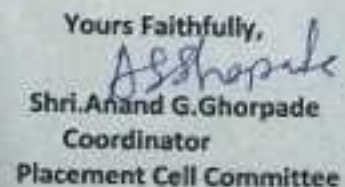 Yours Faithfully,
Shri.Anand G.Ghorpade
Coordinator
Placement Cell Committee